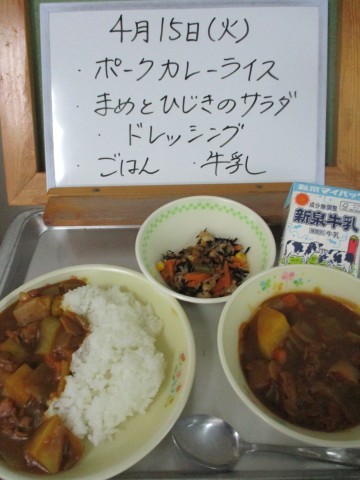 4月15日(火)
・ポークカレーライス
・まめとひじきのサラダ
・ドレッシング
・ごはん ・牛乳
成分無調整
新泉牛乳